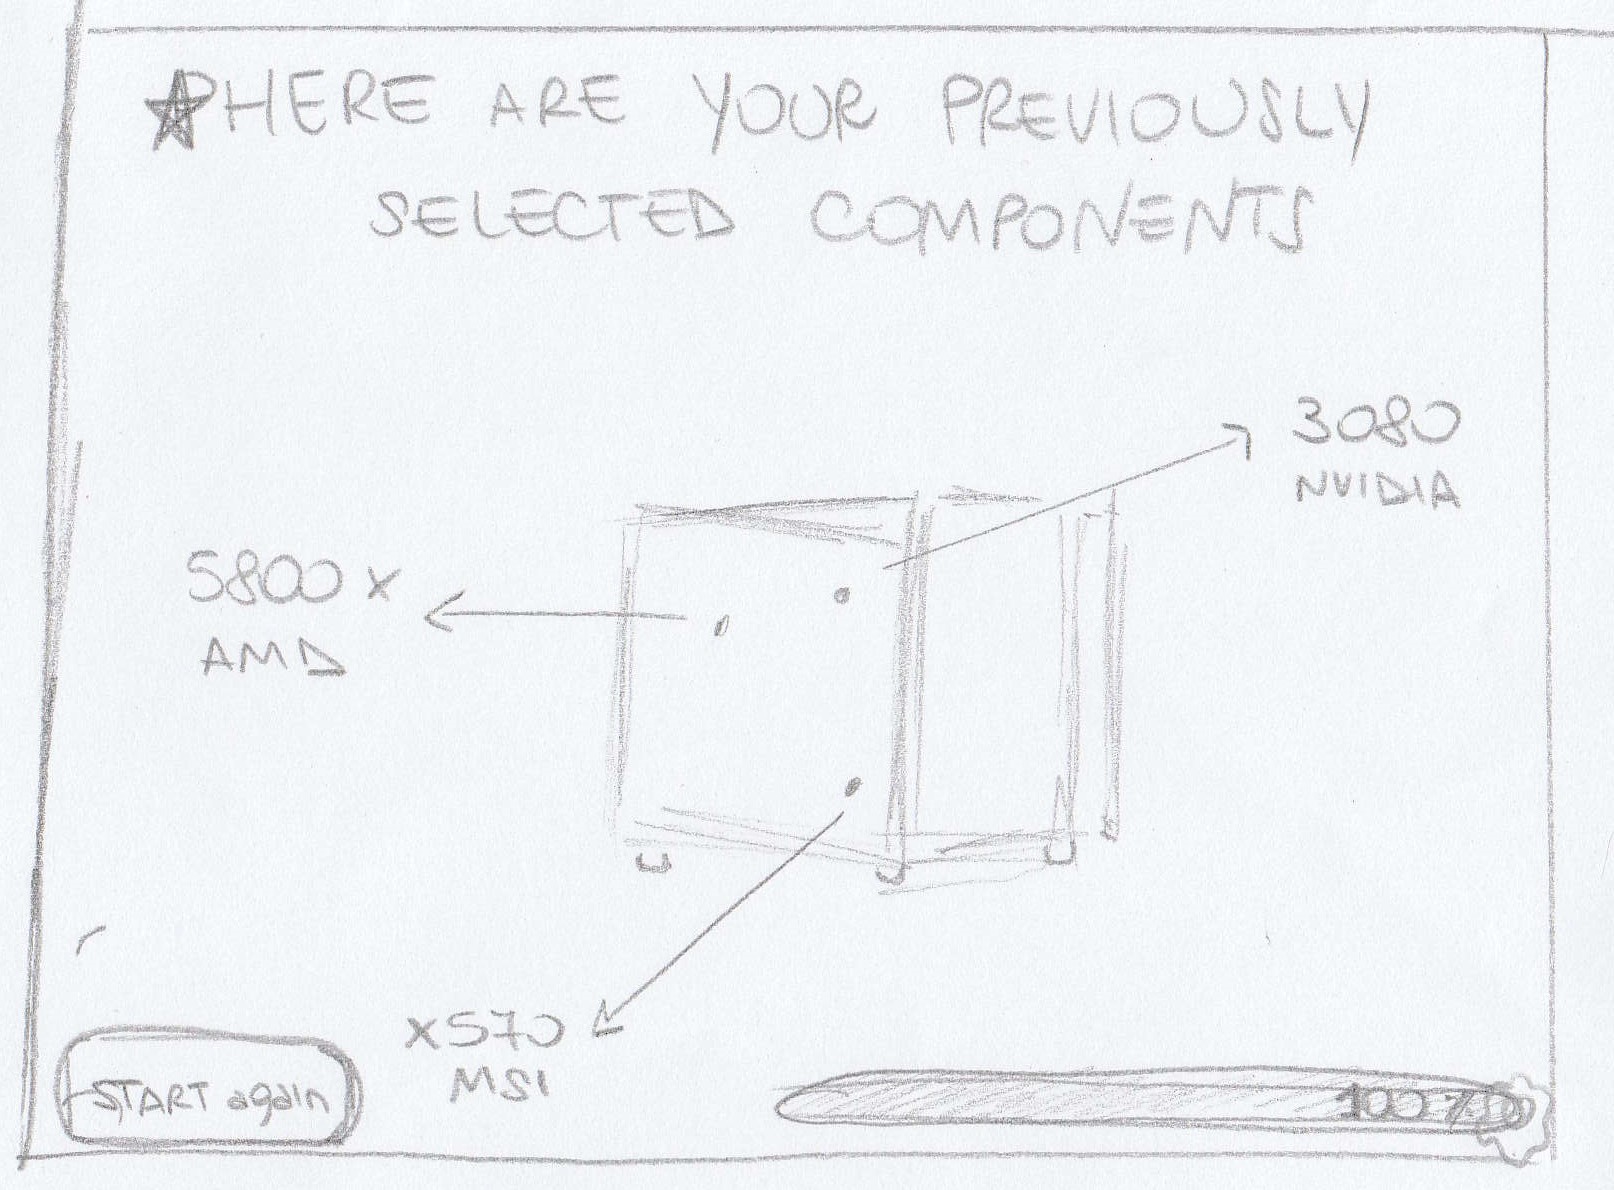 HERE ARE YOUR PREVIOUSLY
SELECTED COMPONENTS
3080
NVIDIA
5800x
AMD
x570
MSI
START again
100%